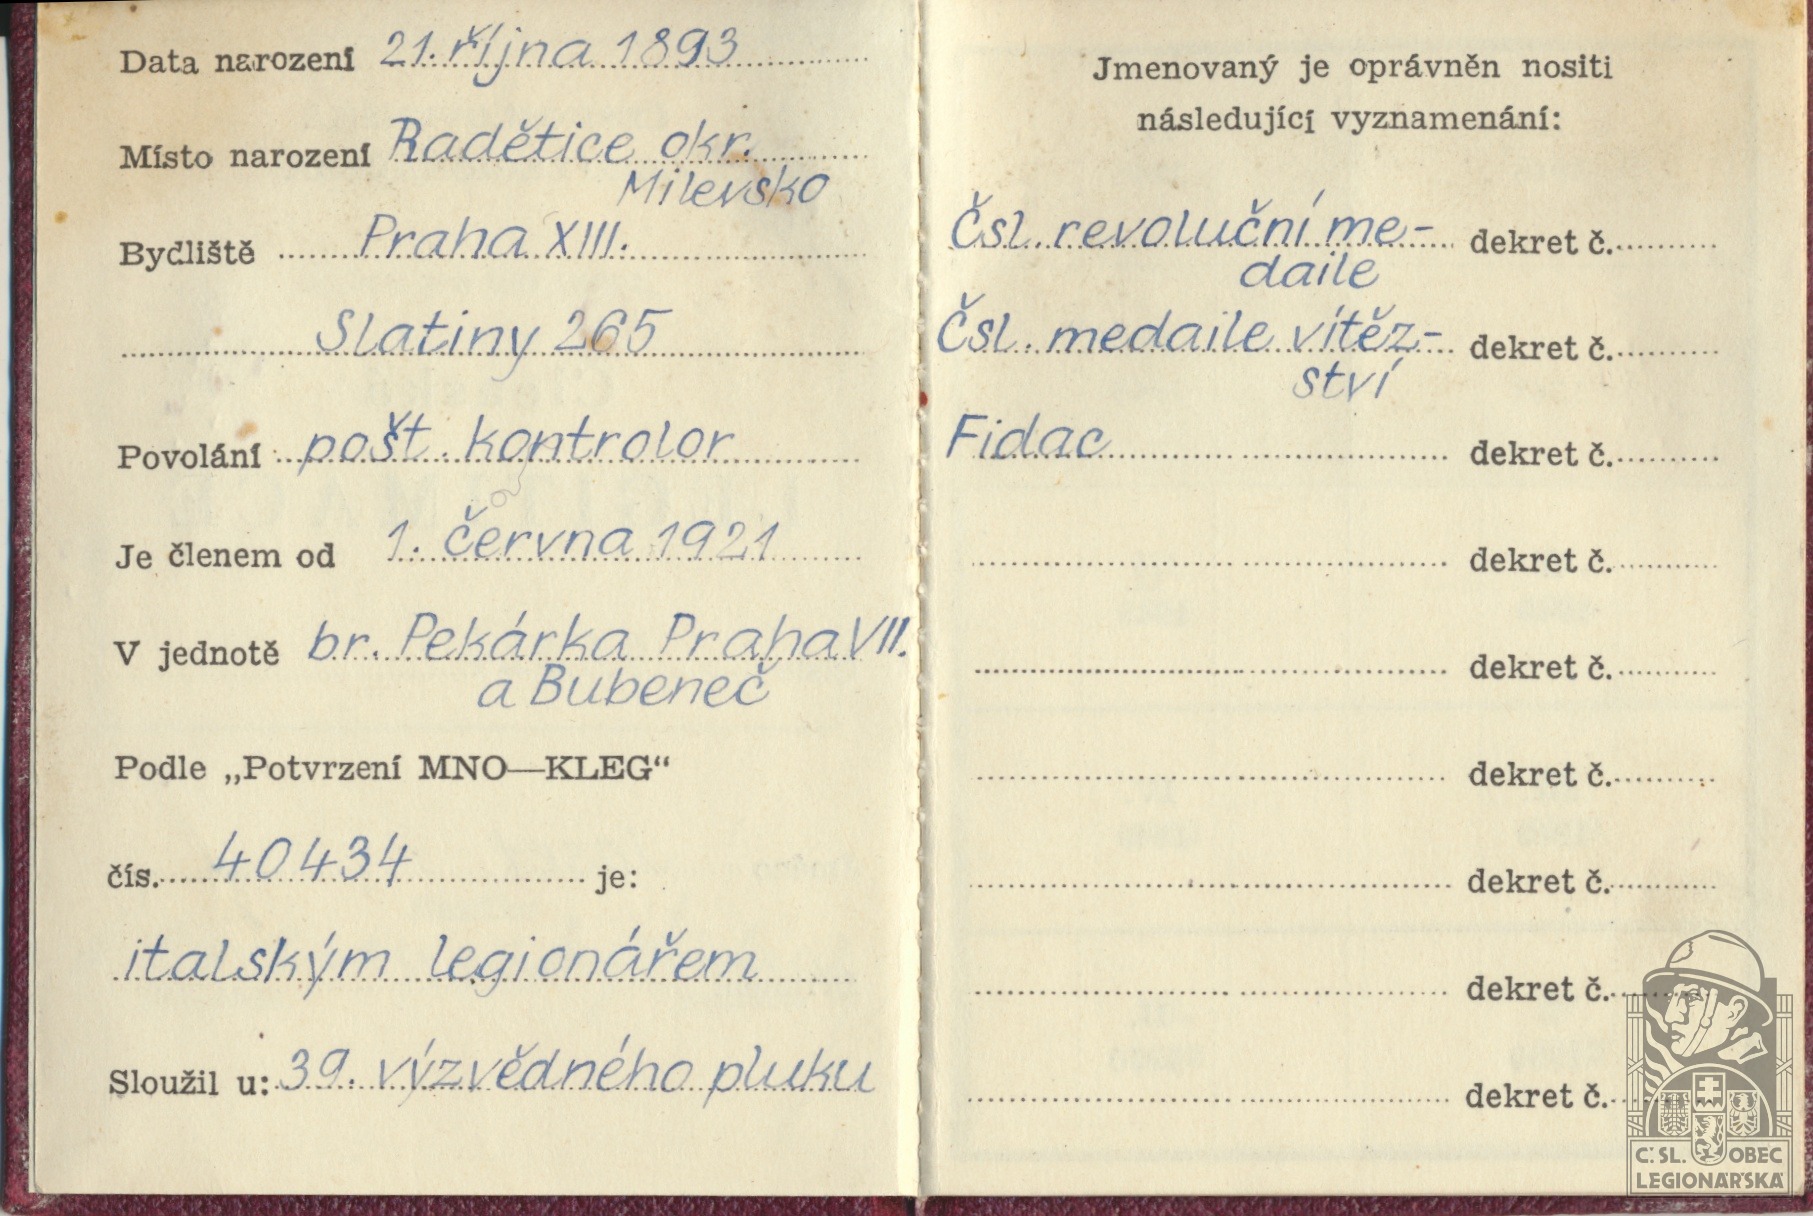 Data narození 21. října 1893
Místo narození Radětice okr.
Milevsko
Bydliště Praha XIII.
Slatiny 265
Povolání pošt. kontrolor
Je členem od 1. června 1921
V jednotě br. Pekárka Praha VII.
a Bubeneč
Podle „Potvrzení MNO—KLEG“
čís. 40434 je:
italským legionářem
Sloužil u: 39. výzvědného pluku
Jmenovaný je oprávněn nositi
následující vyznamenání:
Čsl. revoluční me- dekret č.
daile
Čsl. medaile vítěz- dekret č.
ství
Fidac dekret č.
dekret č.
dekret č.
dekret č.
dekret č.
dekret č.
dekret č.
Č.SL. OBEC
LEGIONÁŘSKÁ